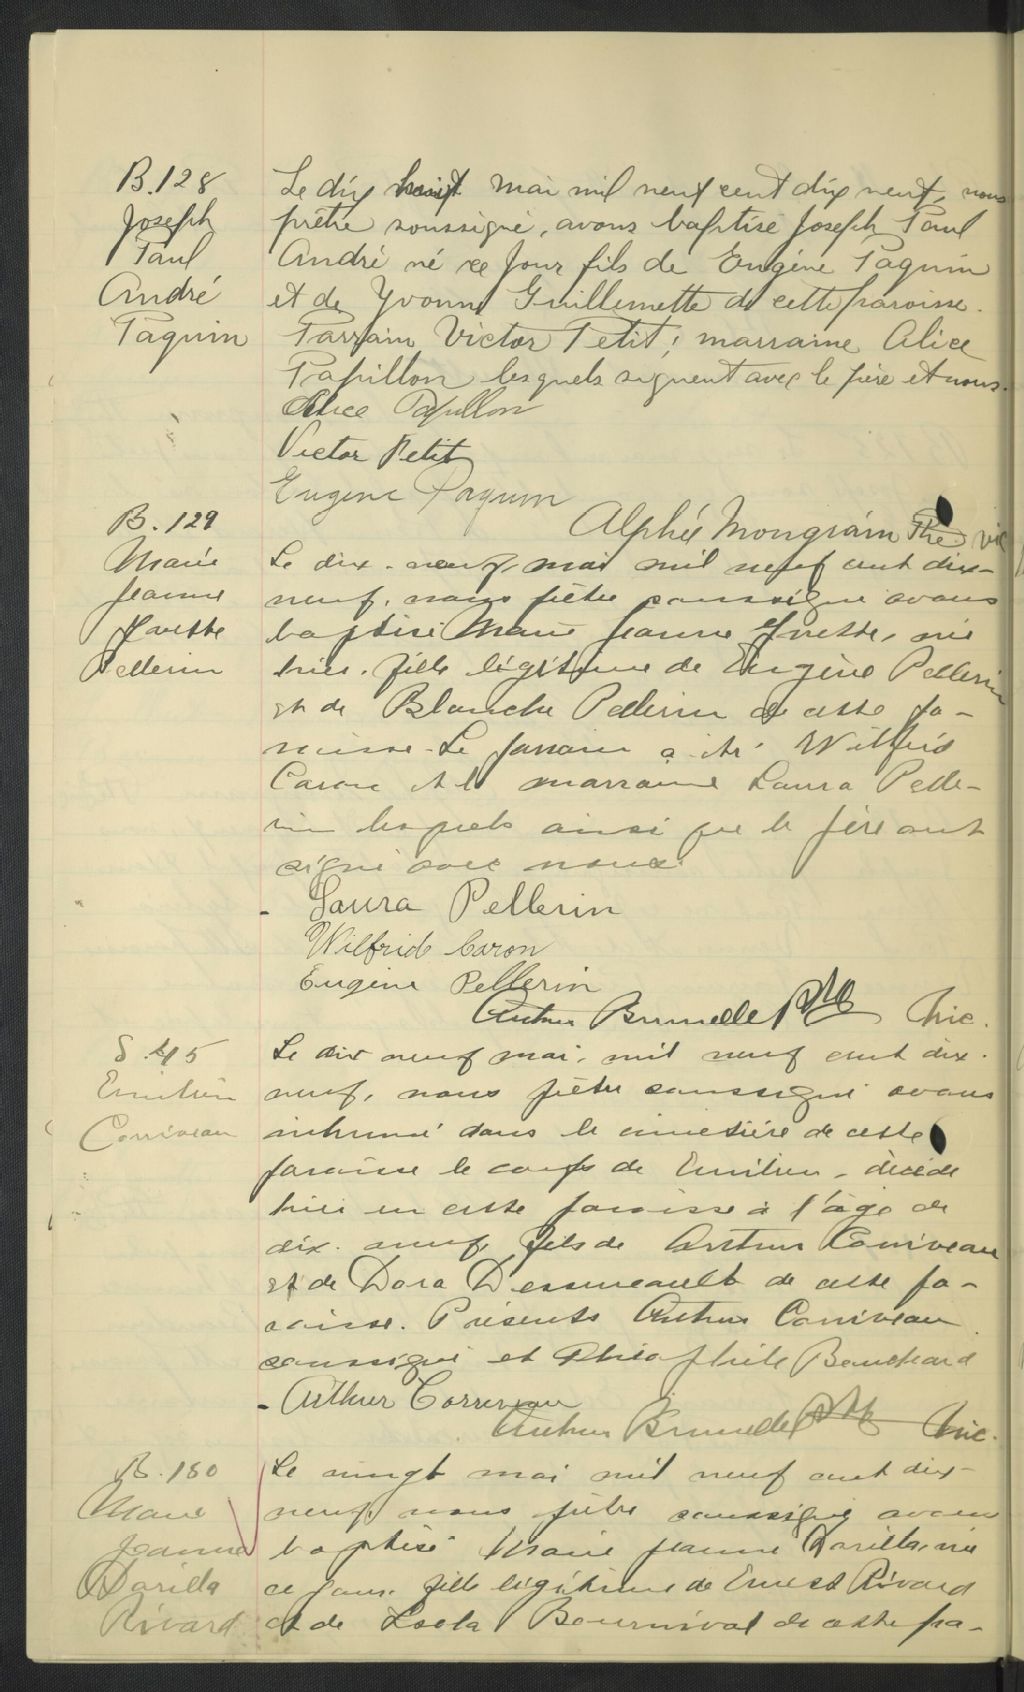 B.128
Joseph
Paul
André
Paquin
Le dix huit mai mil neuf cent dix neuf, nous
prêtre soussigné, avons baptisé Joseph Paul
André né ce jour fils de Eugène Paquin
et de Yvonne Guillemette de cette paroisse.
Parrain Victor Petit; marraine Alice
Papillon lesquels signent avec le père et nous.
Alice Papillon
Victor Petit
Eugene Paquin
Alphée Mongrain Ptre vic
B. 129
Marie
Jeanne
Yvette
Pellerin
Le dix-neuf, mai mil neuf cent dix-
neuf, nous prêtre soussigné avons
baptisé Marie Jeanne Yvette, née
hier, fille légitime de Eugène Pellerin
et de Blanche Pellerin de cette pa-
roisse. Le parrain a été Wilfrid
Caron et la marraine Laura Pelle-
rin lesquels ainsi que le père ont
signé avec nous.
Laura Pellerin
Wilfrid Caron
Eugène Pellerin
Arthur Brunelle Ptre Vic.
S. 45
Emilien
Corriveau
Le dix neuf mai, mil neuf cent dix-
neuf, nous prêtre soussigné avons
inhumé dans le cimetière de cette
paroisse le corps de Emilien, décédé
hier en cette paroisse à l'âge de
dix-neuf, fils de Arthur Corriveau
et de Dora Dessureault de cette pa-
roisse. Présents Arthur Corriveau
soussigné et Théophile Bouchard
Arthur Corriveau
Arthur Brunelle Ptre Vic.
B. 130
Marie
Jeanne
Darilla
Rivard
Le vingt mai mil neuf cent dix-
neuf, nous prêtre soussigné avons
baptisé Marie Jeanne Darilla, née
ce jour, fille légitime de Ernest Rivard
et de Bournival de cette pa-